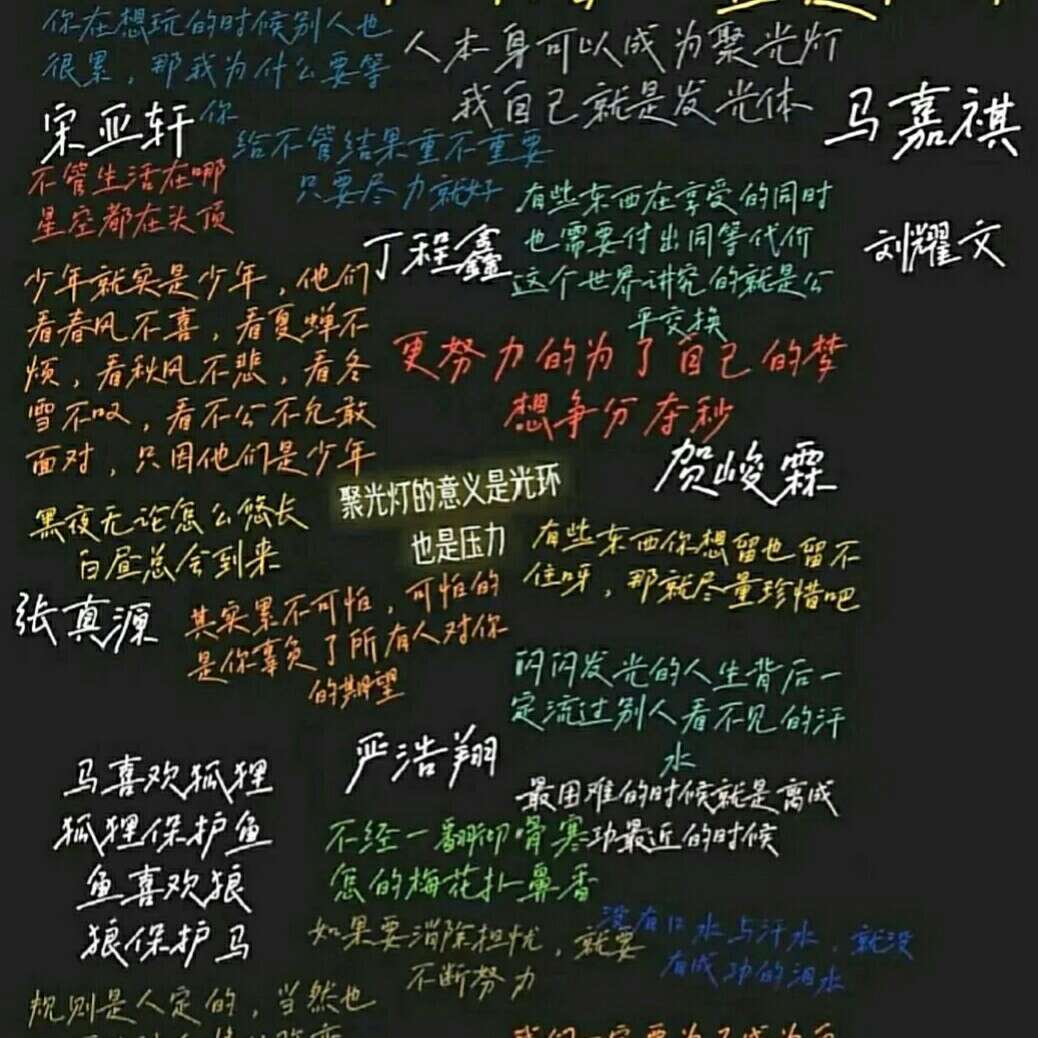 你在想玩的时候别人也
很累，那我为什么要等
你
人本身可以成为聚光灯
我自己就是发光体
宋亚轩
马嘉祺
给不管结果重不重要
只要尽力就好
不管生活在哪
星空都在头顶
有些东西在享受的同时
也需要付出同等代价
这个世界讲究的就是公
平交换
丁程鑫
刘耀文
少年就实是少年，他们
看春风不喜，看夏蝉不
烦，看秋风不悲，看冬
雪不叹，看不公不允敢
面对，只因他们是少年
更努力的为了自己的梦
想争分夺秒
贺峻霖
聚光灯的意义是光环
也是压力
黑夜无论怎么悠长
白昼总会到来
有些东西你想留也留不
住呀，那就尽量珍惜吧
张真源
其实累不可怕，可怕的
是你辜负了所有人对你
的期望
闪闪发光的人生背后一
定流过别人看不见的汗
水
严浩翔
马喜欢狐狸
狐狸保护鱼
鱼喜欢狼
狼保护马
最困难的时候就是离成
功最近的时候
不经一翻彻骨寒
怎的梅花扑鼻香
如果要消除担忧，就要
不断努力
没有口水与汗水，就没
有成功的泪水
规则是人定的，当然也